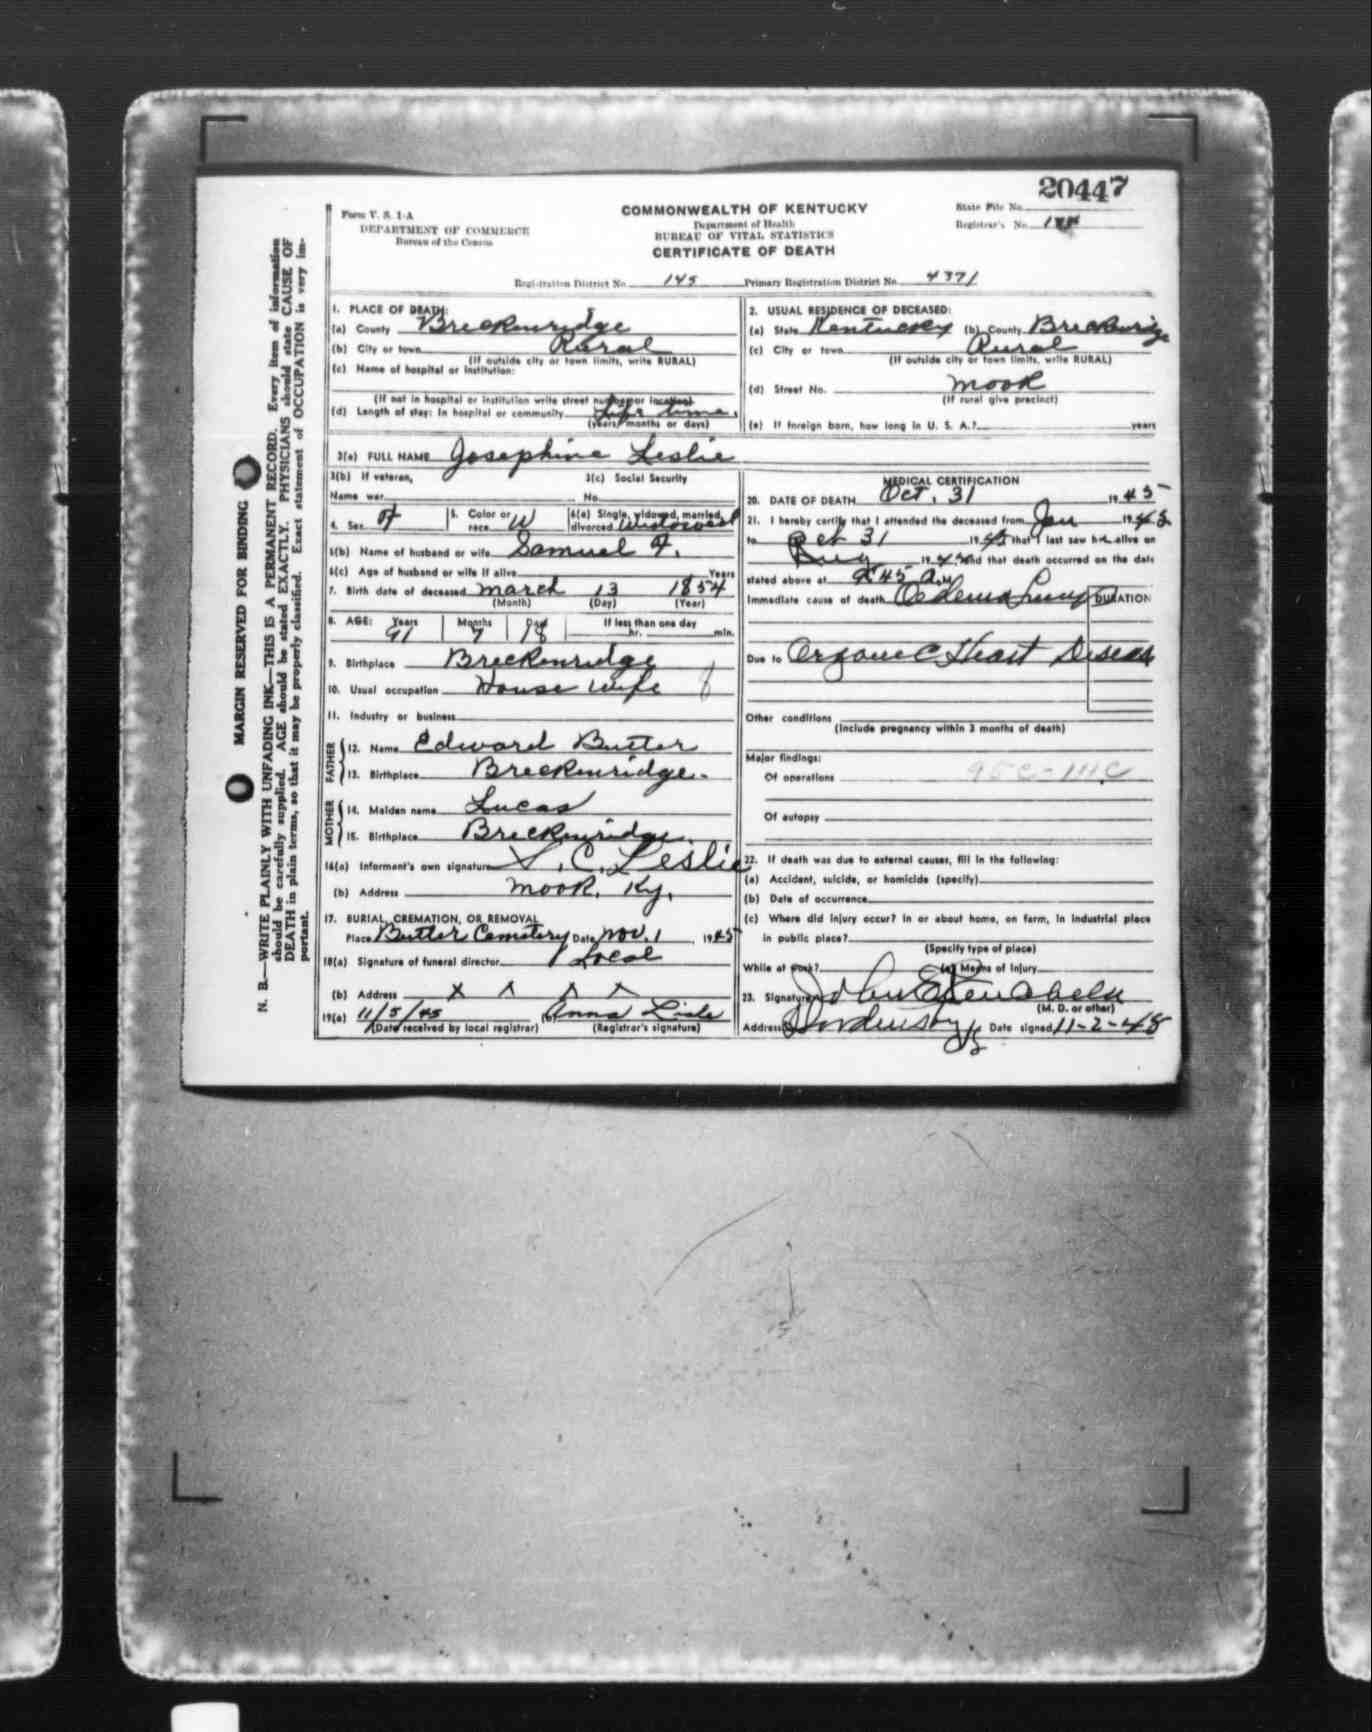 20447
Form V. S. 1-A
DEPARTMENT OF COMMERCE
Bureau of the Census
COMMONWEALTH OF KENTUCKY
Department of Health
BUREAU OF VITAL STATISTICS
CERTIFICATE OF DEATH
State File No.
Registrar's No.
Registration District No. 145 Primary Registration District No. 4371
MARGIN RESERVED FOR BINDING
N. B.—WRITE PLAINLY WITH UNFADING INK—THIS IS A PERMANENT RECORD. Every item of information
should be carefully supplied. AGE should be stated EXACTLY. PHYSICIANS should state CAUSE OF
DEATH in plain terms, so that it may be properly classified. Exact statement of OCCUPATION is very im-
portant.
1. PLACE OF DEATH:
(a) County Breckenridge
(b) City or town Rural
(If outside city or town limits, write RURAL)
(c) Name of hospital or institution:
(If not in hospital or institution write street number or location)
(d) Length of stay: In hospital or community Life time.
(years, months or days)
2. USUAL RESIDENCE OF DECEASED:
(a) State Kentucky (b) County Breckenridge
(c) City or town Rural
(If outside city or town limits, write RURAL)
(d) Street No. Mook
(If rural give precinct)
(e) If foreign born, how long in U. S. A.? years
3(a) FULL NAME Josephine Leslie
3(b) If veteran, 3(c) Social Security
Name war No.
4. Sex F 5. Color or race W 6(a) Single, widowed, married, divorced Widowed
6(b) Name of husband or wife Samuel F.
6(c) Age of husband or wife if alive Years
7. Birth date of deceased March 13 1854
(Month) (Day) (Year)
8. AGE: Years 91 Months 7 Days 18 If less than one day hr. min.
9. Birthplace Breckenridge
10. Usual occupation House wife
11. Industry or business
FATHER
12. Name Edward Butler
13. Birthplace Breckenridge.
MOTHER
14. Maiden name Lucas
15. Birthplace Breckenridge
16(a) Informant's own signature S. C. Leslie
(b) Address Mook, Ky.
17. BURIAL, CREMATION, OR REMOVAL
Place Butler Cemetery Date Nov. 1, 1945
18(a) Signature of funeral director Local
(b) Address x x x x
19(a) 11/5/45 (b) Anna Lisle
(Date received by local registrar) (Registrar's signature)
MEDICAL CERTIFICATION
20. DATE OF DEATH Oct. 31 1945
21. I hereby certify that I attended the deceased from Jan 1945
to Oct 31 1945 that I last saw her alive on
Aug 1945 and that death occurred on the date
stated above at 2 45 A.M
Immediate cause of death Oedema Lungs DURATION
Due to Organic Heart Diseas
Other conditions
(Include pregnancy within 3 months of death)
Major findings:
Of operations 95c-111c
Of autopsy
22. If death was due to external causes, fill in the following:
(a) Accident, suicide, or homicide (specify)
(b) Date of occurrence
(c) Where did injury occur? In or about home, on farm, in industrial place
in public place?
(Specify type of place)
While at work? (e) Means of Injury
23. Signature John E
(M. D. or other)
Address Date signed 11-2-45